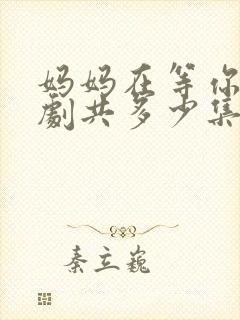 妈妈在等你
劇共多少集
秦立巍